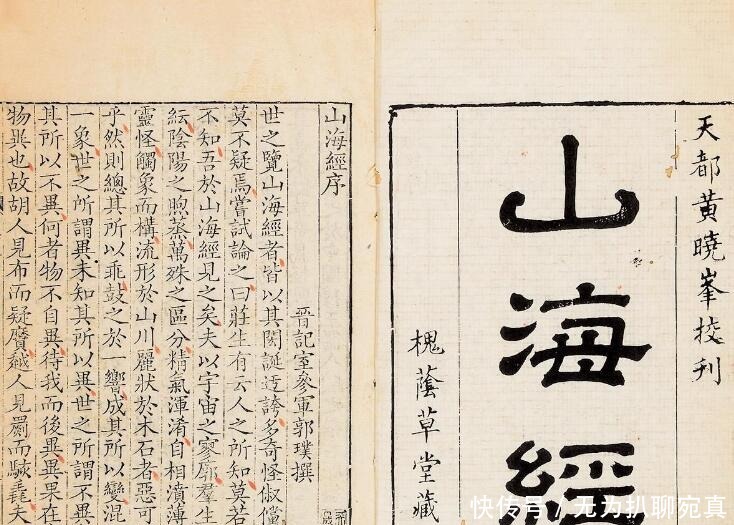 天都黄曉峯挍刊
山海經
槐蔭草堂藏
山海經序
晉記室參軍郭璞撰
世之覽山海經者皆以其閎誕迂誇多奇怪俶儻
莫不疑焉嘗試論之曰莊生有云人之所知莫若
不知吾於山海經見之矣夫以宇宙之寥廓羣生
紜陰陽之煦蒸萬殊之區分精氣渾淆自相濆薄
靈怪觸象而構流形於山川麗狀於木石者惡可
乎然則總其所以乖鼓之於一響成其所以變混
一象世之所謂異未知其所以異世之所謂不異
其所以不異何者物不自異待我而後異異果在
物異也故胡人見布而疑黂越人見罽而駭毳夫
快传号/无为扒聊宛真